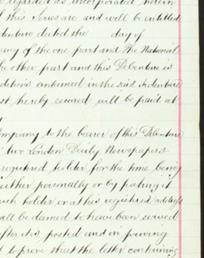 regarded as incorporated herein
of this Series are and will be entitled
Indenture dated the day of
any of the one part and the National
the other part and this Debenture is
ditions contained in the said indenture
st hereby secured will be paid at
y
Company to the bearer of this Debenture
in two London Daily Newspapers
registered holder for the time being
either personally or by posting it
such holder at his registered address
all be deemed to have been served
after it is posted and in proving
to prove that the letter containing